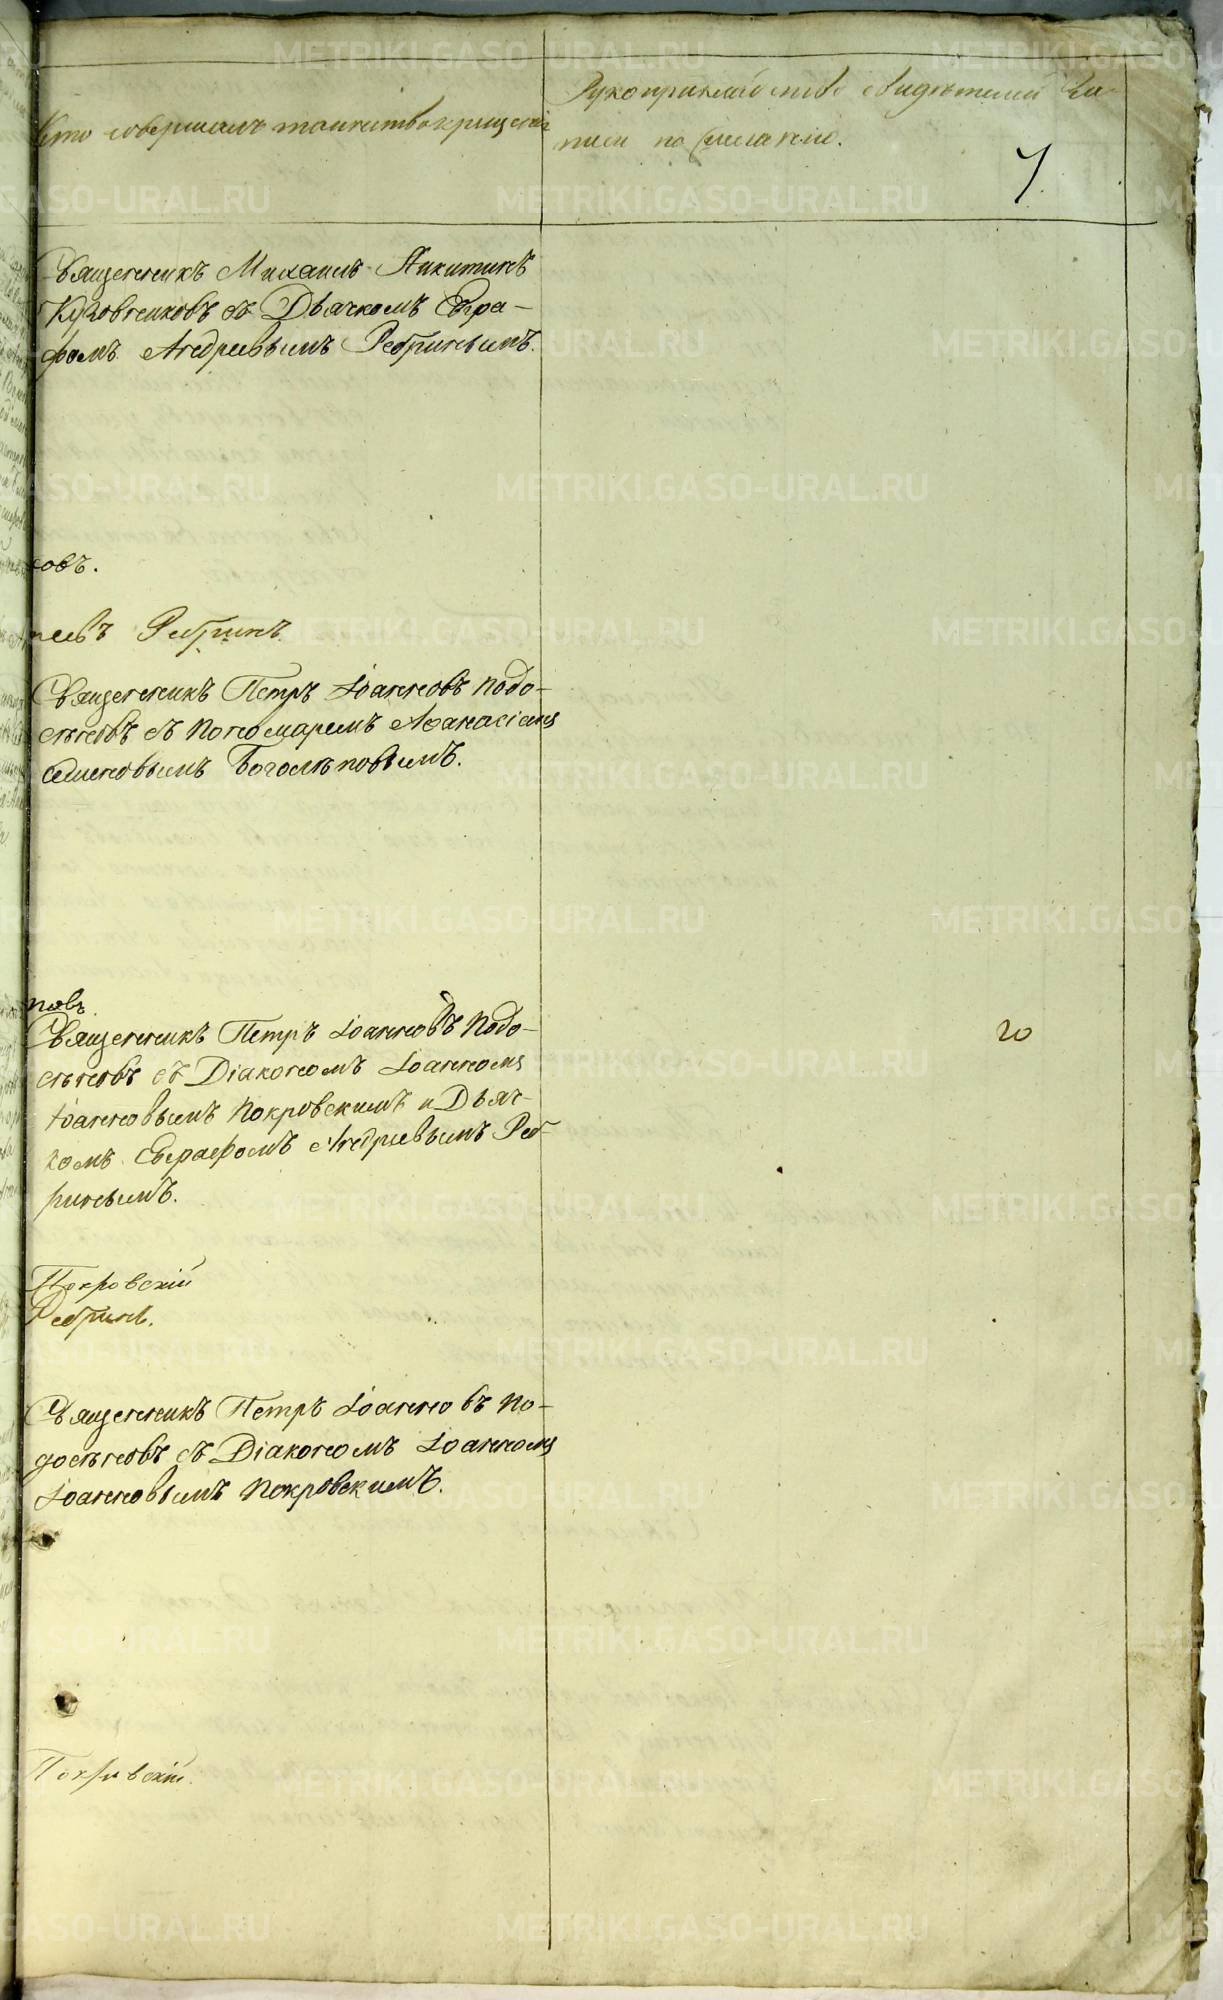 Кто совершалъ таинство крещенія
Рукоприкладство свидѣтелей за-
писи по желанію.
7.
Священникъ Михаилъ Никитинъ
Кузовниковъ съ Дьячкомъ Евгра-
фомъ Андреевымъ Ребринымъ.
ковъ.
Ребринъ.
Священникъ Петръ Іоанновъ Подо-
сѣновъ съ Пономаремъ Аѳанасіемъ
Семеновымъ Боголѣповымъ.
повъ.
Священникъ Петръ Іоанновъ Подо-
сѣновъ съ Діакономъ Іоанномъ
Іоанновымъ Покровскимъ и Дьяч-
комъ Евграфомъ Андреевымъ Реб-
ринымъ.
20
Покровскій
Ребринъ.
Священникъ Петръ Іоанновъ По-
досѣновъ съ Діакономъ Іоанномъ
Іоанновымъ Покровскимъ.
Покровскій.
METRIKI.GASO-URAL.RU